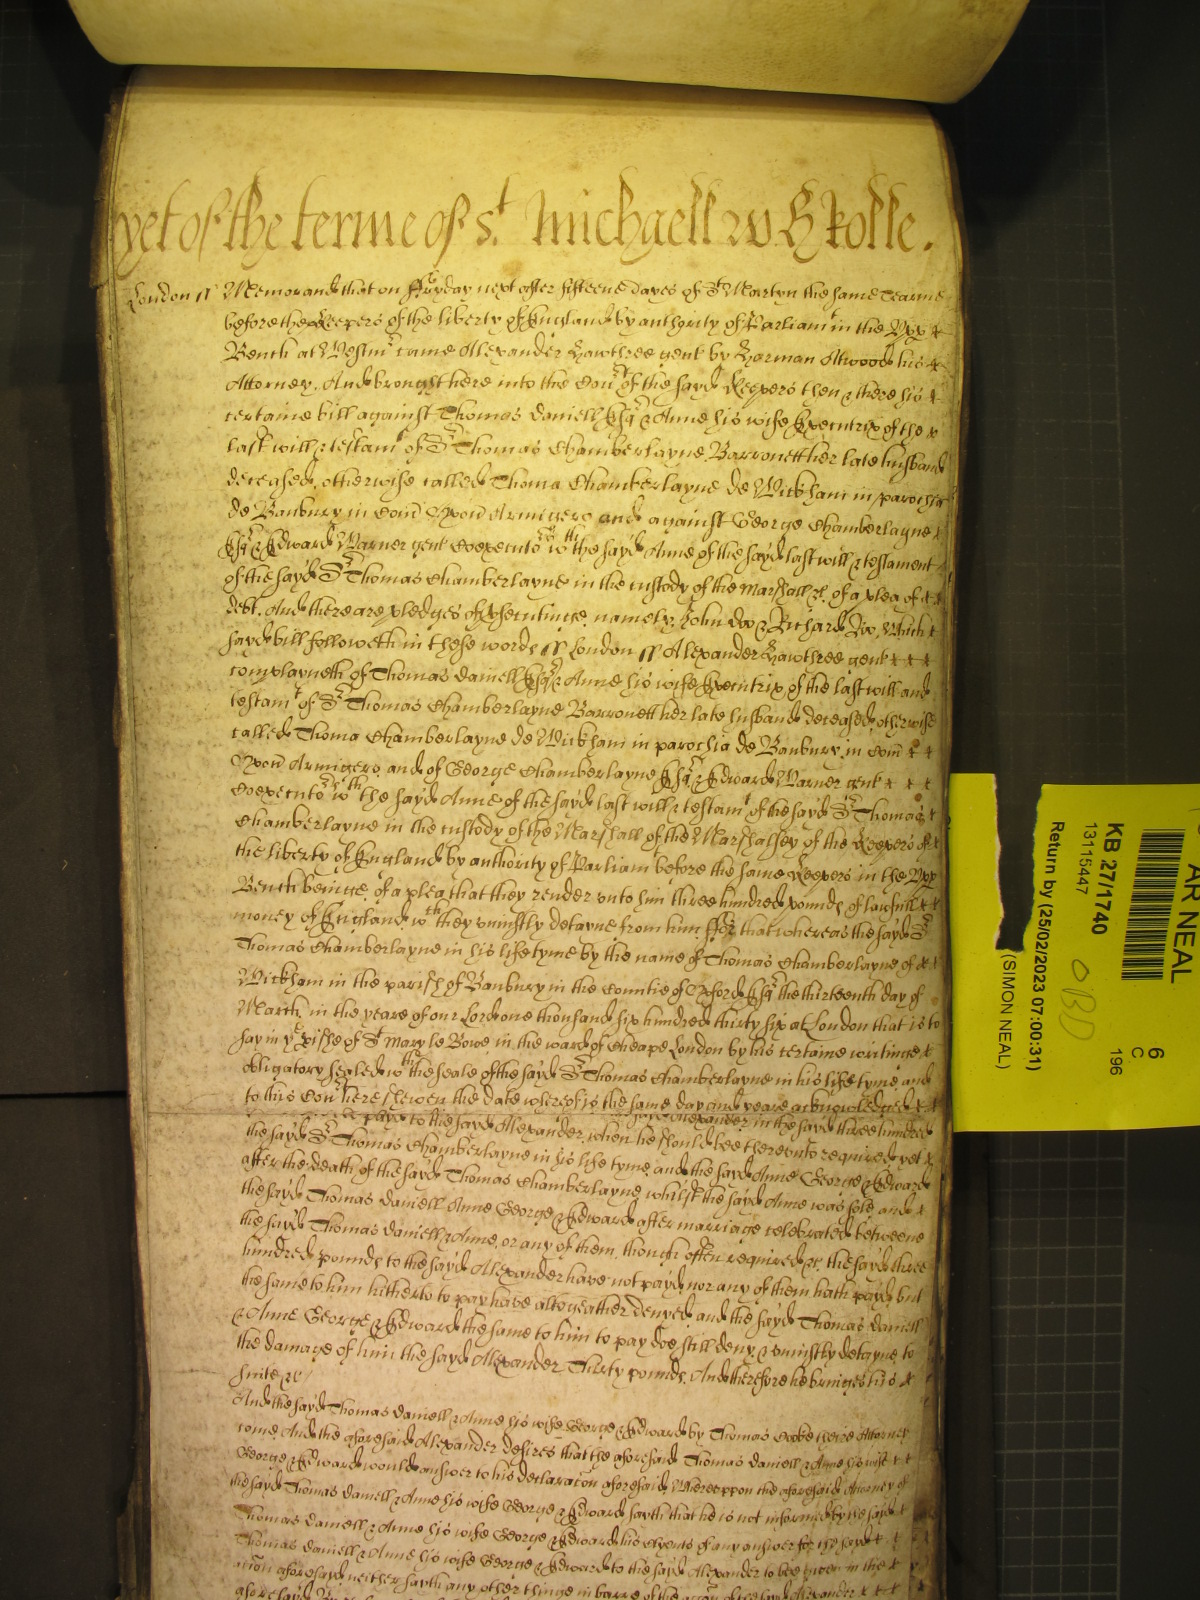 yet of the terme of St. Michaell w H Rolle.
London ss Memorand that on ffryday next after fifteene dayes of St Martyn the same Tearme
before the Keepers of the liberty of England by authority of Parliamt in the Upp
Bench at Westmr came Alexander Hawthree gent by Harman Atwood his
Attorney. And brought here into the Court of the sayd Keepers then & there his
certaine bill against Thomas Daniell Esqr & Anne his wife Executrix of the
last will & testamt of Sr Thomas Chamberlayne Barronett her late husband
deceased, otherwise called Thoma Chamberlayne de Wickham in parochia
de Banbury in Com Oxon Armigero and against George Chamberlayne
Esqr & Edward Warner gent Coexecutors wth the sayd Anne of the sayd last will & testament
of the sayd Sr Thomas Chamberlayne in the custody of the Marshall &c. of a plea of
debt. And there are pledges of prosecutinge, namely, John Doo & Richard Roo, Which
sayd bill followeth in these words ss London ss Alexander Hawthree gent
complayneth of Thomas Daniell Esqr & Anne his wife Executrix of the last will and
testamt of Sr Thomas Chamberlayne Barronett her late husband deceased, otherwise
called Thoma Chamberlayne de Wickham in parochia de Banbury in Com
Oxon Armigero, and of George Chamberlayne Esqr & Edward Warner gent
Coexecutors wth the sayd Anne of the sayd last will & testamt of the sayd Sr Thomas
Chamberlayne in the custody of the Marshall of the Marshalsey of the Keepers of
the liberty of England by authority of Parliam before the same Keepers in the Upp
Bench beinge, of a plea that they render unto him three hundred pounds of lawfull
money of England, wch they uniustly detayne from him ffor that whereas the sayd Sr
Thomas Chamberlayne in his life tyme by the name of Thomas Chamberlayne of
Wickham in the parish of Banbury in the Countie of Oxford Esqr the thirteenth day of
March, in the yeare of our Lord one thousand six hundred thirty six at London that is to
say in ye parishe of St Mary le Bowe, in the ward of Cheape London by his certaine writinge
obligatory sealed wth the seale of the sayd Sr Thomas Chamberlayne in his life tyme and
to this Court here shewen the date whereof is the same day and yeare acknowledged
payd to the sayd Alexander, when he should bee thereunto required, yet
the sayd Sr Thomas Chamberlayne in his life tyme, and the sayd Anne George & Edward
after the death of the sayd Thomas Chamberlayne, whilst the sayd Anne was sole, and
the sayd Thomas Daniell Anne George & Edward after marriage celebrated betweene
the sayd Thomas Daniell & Anne, or any of them, though often required &c. the sayd three
hundred pounds to the sayd Alexander have not payd, nor any of them hath payd, but
the same to him hitherto to pay have altogeather denyed, and the sayd Thomas Daniell
& Anne George & Edward the same to him to pay doe still deny, & uniustly detayne to
the damage of him the sayd Alexander Thirty pounds. And therefore he bringes his
suite &c
And the sayd Thomas Daniell & Anne his wife George & Edward by Thomas Cooke theire Attorney
come, And the aforesaid Alexander desires that the aforesaid Thomas Daniell & Anne his wife
George & Edward would answer to his declaracon aforesaid, Whereuppon the aforesaid Attorney of
the sayd Thomas Daniell & Anne his wife George & Edward sayth that he is not informed by the sayd
Thomas Daniell & Anne his wife George & Edward his clyents of any answer for the sayd
Thomas Daniell & Anne his wife George & Edward to the sayd Alexander to bee given in the
accon aforesayd neither sayth any other thinge in barre of the accon of the sayd Alexander
aforesayd
AR NEAL
KB 27/1740
13115447
Return by (25/02/2023 07:00:31)
(SIMON NEAL)
6
C
196